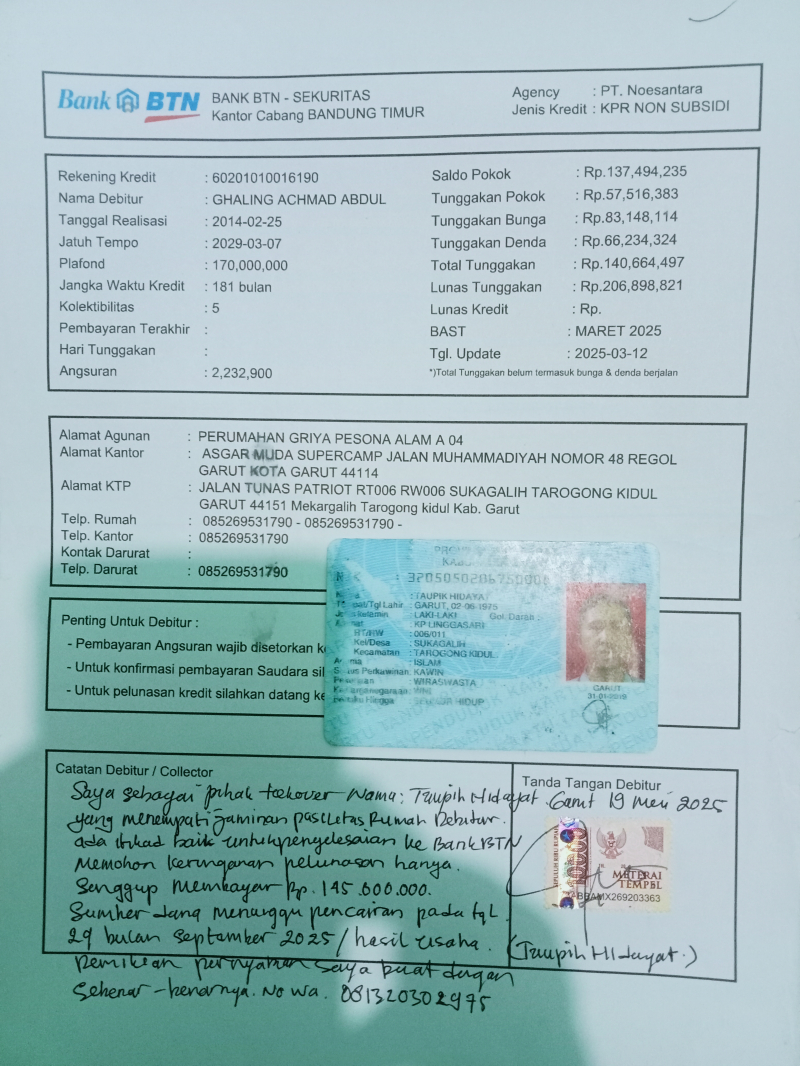 Bank BTN
BANK BTN - SEKURITAS
Kantor Cabang BANDUNG TIMUR
Agency : PT. Noesantara
Jenis Kredit : KPR NON SUBSIDI
Rekening Kredit : 60201010016190
Nama Debitur : GHALING ACHMAD ABDUL
Tanggal Realisasi : 2014-02-25
Jatuh Tempo : 2029-03-07
Plafond : 170,000,000
Jangka Waktu Kredit : 181 bulan
Kolektibilitas : 5
Pembayaran Terakhir :
Hari Tunggakan :
Angsuran : 2,232,900
Saldo Pokok : Rp.137,494,235
Tunggakan Pokok : Rp.57,516,383
Tunggakan Bunga : Rp.83,148,114
Tunggakan Denda : Rp.66,234,324
Total Tunggakan : Rp.140,664,497
Lunas Tunggakan : Rp.206,898,821
Lunas Kredit : Rp.
BAST : MARET 2025
Tgl. Update : 2025-03-12
*)Total Tunggakan belum termasuk bunga & denda berjalan
Alamat Agunan : PERUMAHAN GRIYA PESONA ALAM A 04
Alamat Kantor : ASGAR MUDA SUPERCAMP JALAN MUHAMMADIYAH NOMOR 48 REGOL
GARUT KOTA GARUT 44114
Alamat KTP : JALAN TUNAS PATRIOT RT006 RW006 SUKAGALIH TAROGONG KIDUL
GARUT 44151 Mekargalih Tarogong kidul Kab. Garut
Telp. Rumah : 085269531790 - 085269531790 -
Telp. Kantor : 085269531790
Kontak Darurat :
Telp. Darurat : 085269531790
Penting Untuk Debitur :
- Pembayaran Angsuran wajib disetorkan
- Untuk konfirmasi pembayaran Saudara
- Untuk pelunasan kredit silahkan datang
: TAUPIK HIDAYAT
: GARUT, 02-06-1975
: LAKI-LAKI Gol. Darah :
: KP LINGGASARI
RT/RW : 006/011
Kel/Desa : SUKAGALIH
Kecamatan : TAROGONG KIDUL
: ISLAM
Status Perkawinan: KAWIN
: WIRASWASTA
: WNI
: SEUMUR HIDUP
GARUT
Catatan Debitur / Collector
Saya sebagai pihak takeover Nama: Taupik Hidayat
yang menempati jaminan Rumah Debitur.
ada itikad baik untuk penyelesaian ke Bank BTN
Memohon keringanan pelunasan hanya.
Sanggup membayar Rp. 145.000.000.
Sumber dana menunggu pencairan pada tgl.
29 bulan September 2025 / hasil usaha.
Demikian saya buat dengan
Sebenar-benarnya. No wa. 081320302975
Tanda Tangan Debitur
Garut 19 Mei 2025
10000
METERAI
TEMPEL
BBAMX269203363
(Taupik Hidayat.)